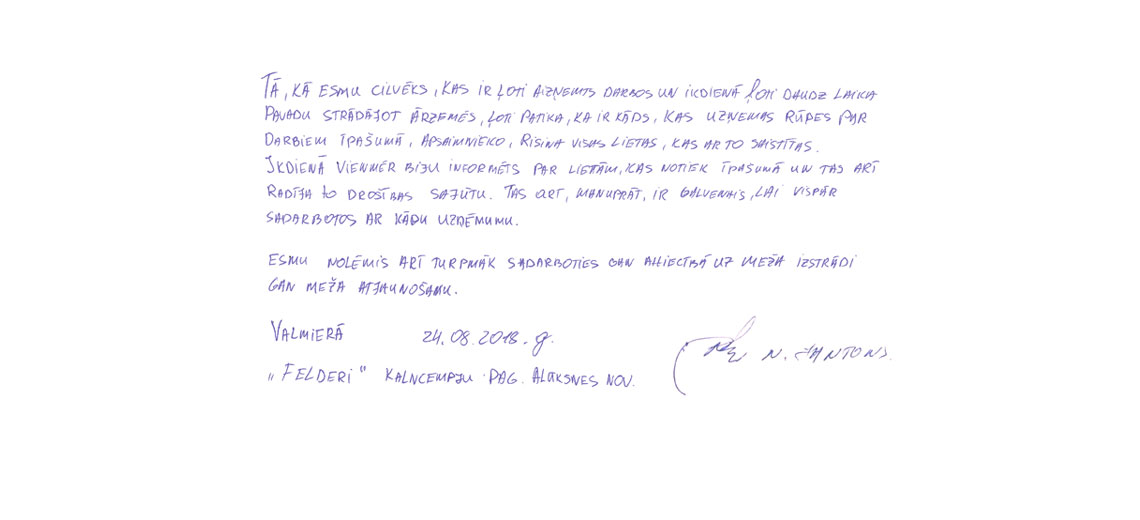 Tā, kā esmu cilvēks, kas ir ļoti aizņemts darbos un ikdienā ļoti daudz laika
pavadu strādājot ārzemēs, ļoti patika, ka ir kāds, kas uzņemas rūpes par
darbiem īpašumā, apsaimnieko, risina visas lietas, kas ar to saistītas.
Ikdienā vienmēr biju informēts par lietām, kas notiek īpašumā un tas arī
radīja to drošības sajūtu. Tas arī, manuprāt, ir galvenais, lai vispār
sadarbotos ar kādu uzņēmumu.
Esmu nolēmis arī turpmāk sadarboties gan attiecībā uz meža izstrādi
gan meža atjaunošanu.
Valmierā 24.08.2018.g.
N. Jantons.
„Felderi" Kalncempju pag. Alūksnes nov.